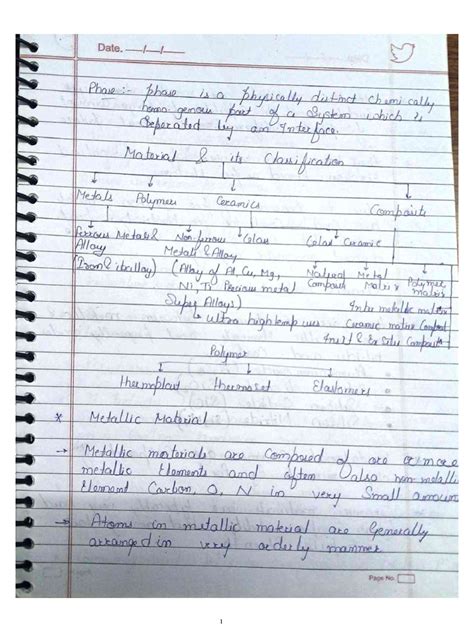 Date. —/—/—
Phase :- phase is a physically distinct chemically
homo genous part of a System which is
Seperated by an Interface.
Material & its Classification
Metals Polymers Ceramics Composite
Ferrous Metals & Non-ferrous Glass Glass Ceramic
Alloy Metals & Alloy
(Iron & its alloy) (Alloy of Al, Cu, Mg, Natural Metal Polymer
Ni, Ti Precious metal Composit Matrix matrix
Super Alloys) Inter metallic matrix
Ultra high temp uses Ceramic matrix Composit
Inert & Ex Situ Composit
Polymer
Thermplast Thermoset Elastamers
* Metallic Material
→ Metallic materials are Composed of one or more
metallic Elements and often also non-metallic
Element Carbon, O, N in very Small amount
→ Atoms in metallic material are Generally
arranged in very orderly manner
Page No.
1